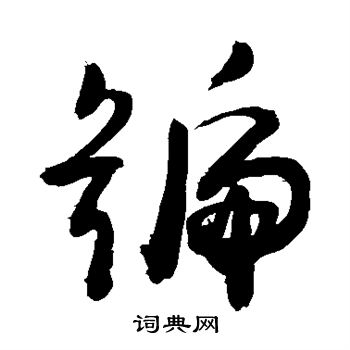 编
词典网